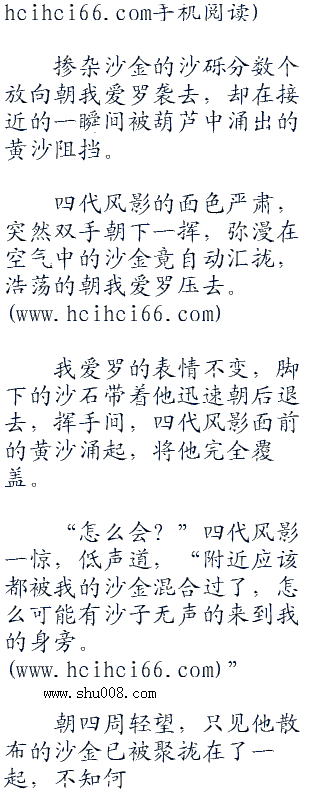 hcihci66.com手机阅读)
掺杂沙金的沙砾分数个
放向朝我爱罗袭去，却在接
近的一瞬间被葫芦中涌出的
黄沙阻挡。
四代风影的面色严肃，
突然双手朝下一挥，弥漫在
空气中的沙金竟自动汇拢，
浩荡的朝我爱罗压去。
(www.hcihci66.com)
我爱罗的表情不变，脚
下的沙石带着他迅速朝后退
去，挥手间，四代风影面前
的黄沙涌起，将他完全覆
盖。
“怎么会？”四代风影
一惊，低声道，“附近应该
都被我的沙金混合过了，怎
么可能有沙子无声的来到我
的身旁。
(www.hcihci66.com)”
www.shu008.com
朝四周轻望，只见他散
布的沙金已被聚拢在了一
起，不知何